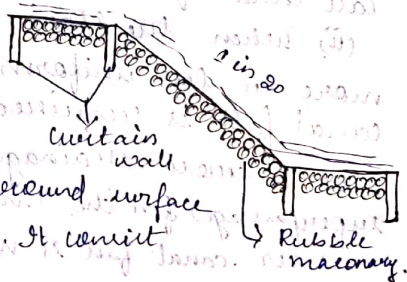 1 in 20
Curtain
wall
round surface
. It consist
Rubble
masonary.